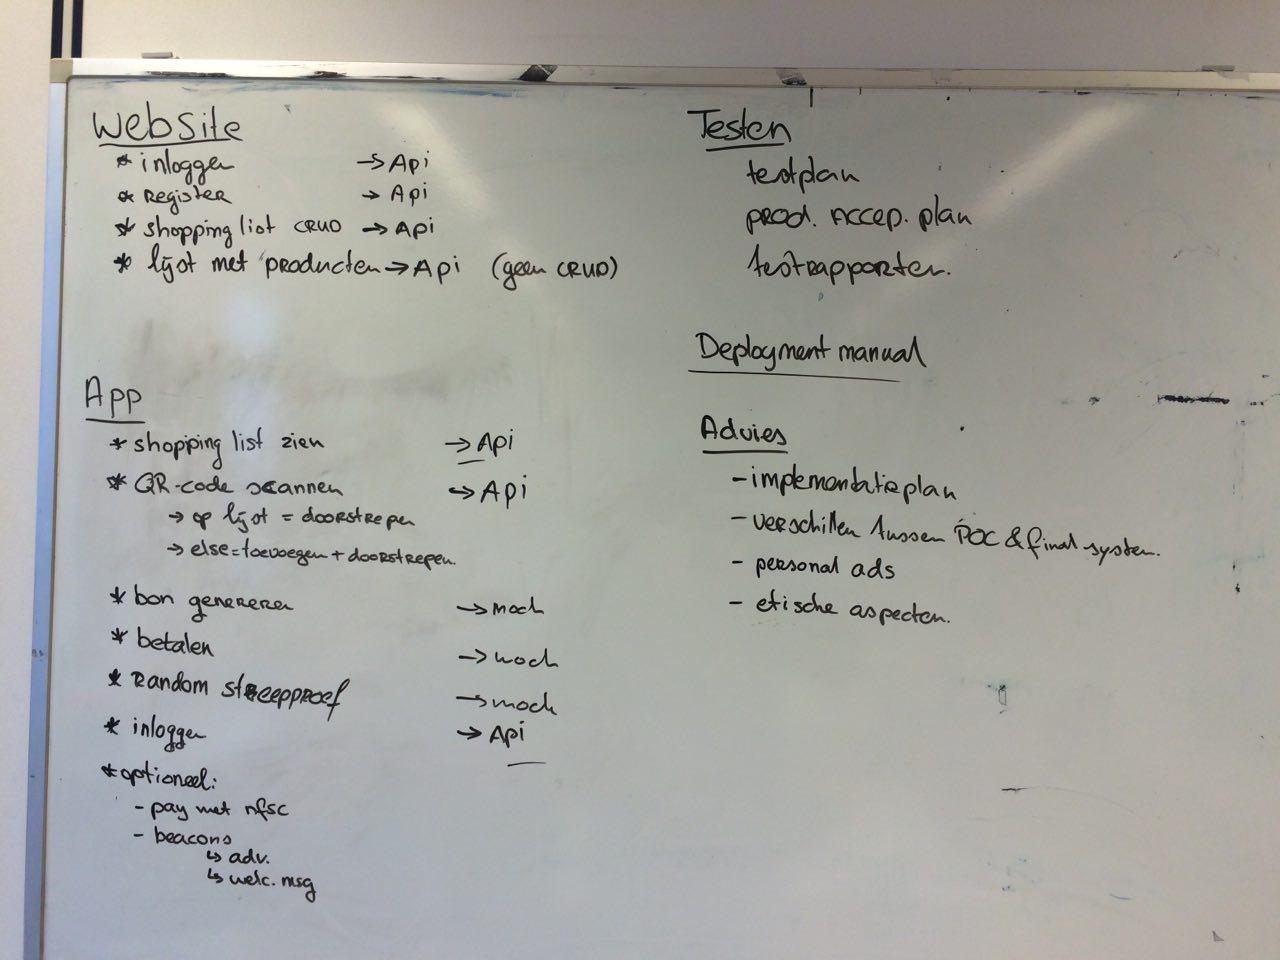 Website
* inloggen → Api
* Register → Api
* shopping list CRUD → Api
* lijst met producten → Api (geen CRUD)
App
* shopping list zien → Api
* QR-code scannen → Api
→ op lijst = doorstrepen
→ else = toevoegen + doorstrepen.
* bon genereren → mock
* betalen → mock
* Random steepproef → mock
* inloggen → Api
* optioneel:
- pay met nfsc
- beacons
↳ adv.
↳ welc. msg
Testen
testplan
prod. Accep. plan
testrapporten.
Deployment manual
Advies
- implementatieplan
- verschillen tussen POC & final system.
- personal ads
- etische aspecten.